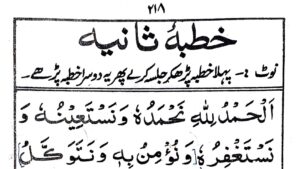 ۲۱۸
خطبۂ ثانیہ
نوٹ :- پہلا خطبہ پڑھکر جلسہ کرے پھر یہ دوسرا خطبہ پڑھے۔
اَلْحَمْدُ لِلّٰهِ نَحْمَدُهٗ وَنَسْتَعِيْنُهٗ وَ
نَسْتَغْفِرُهٗ وَنُؤْمِنُ بِهٖ وَنَتَوَكَّلُ